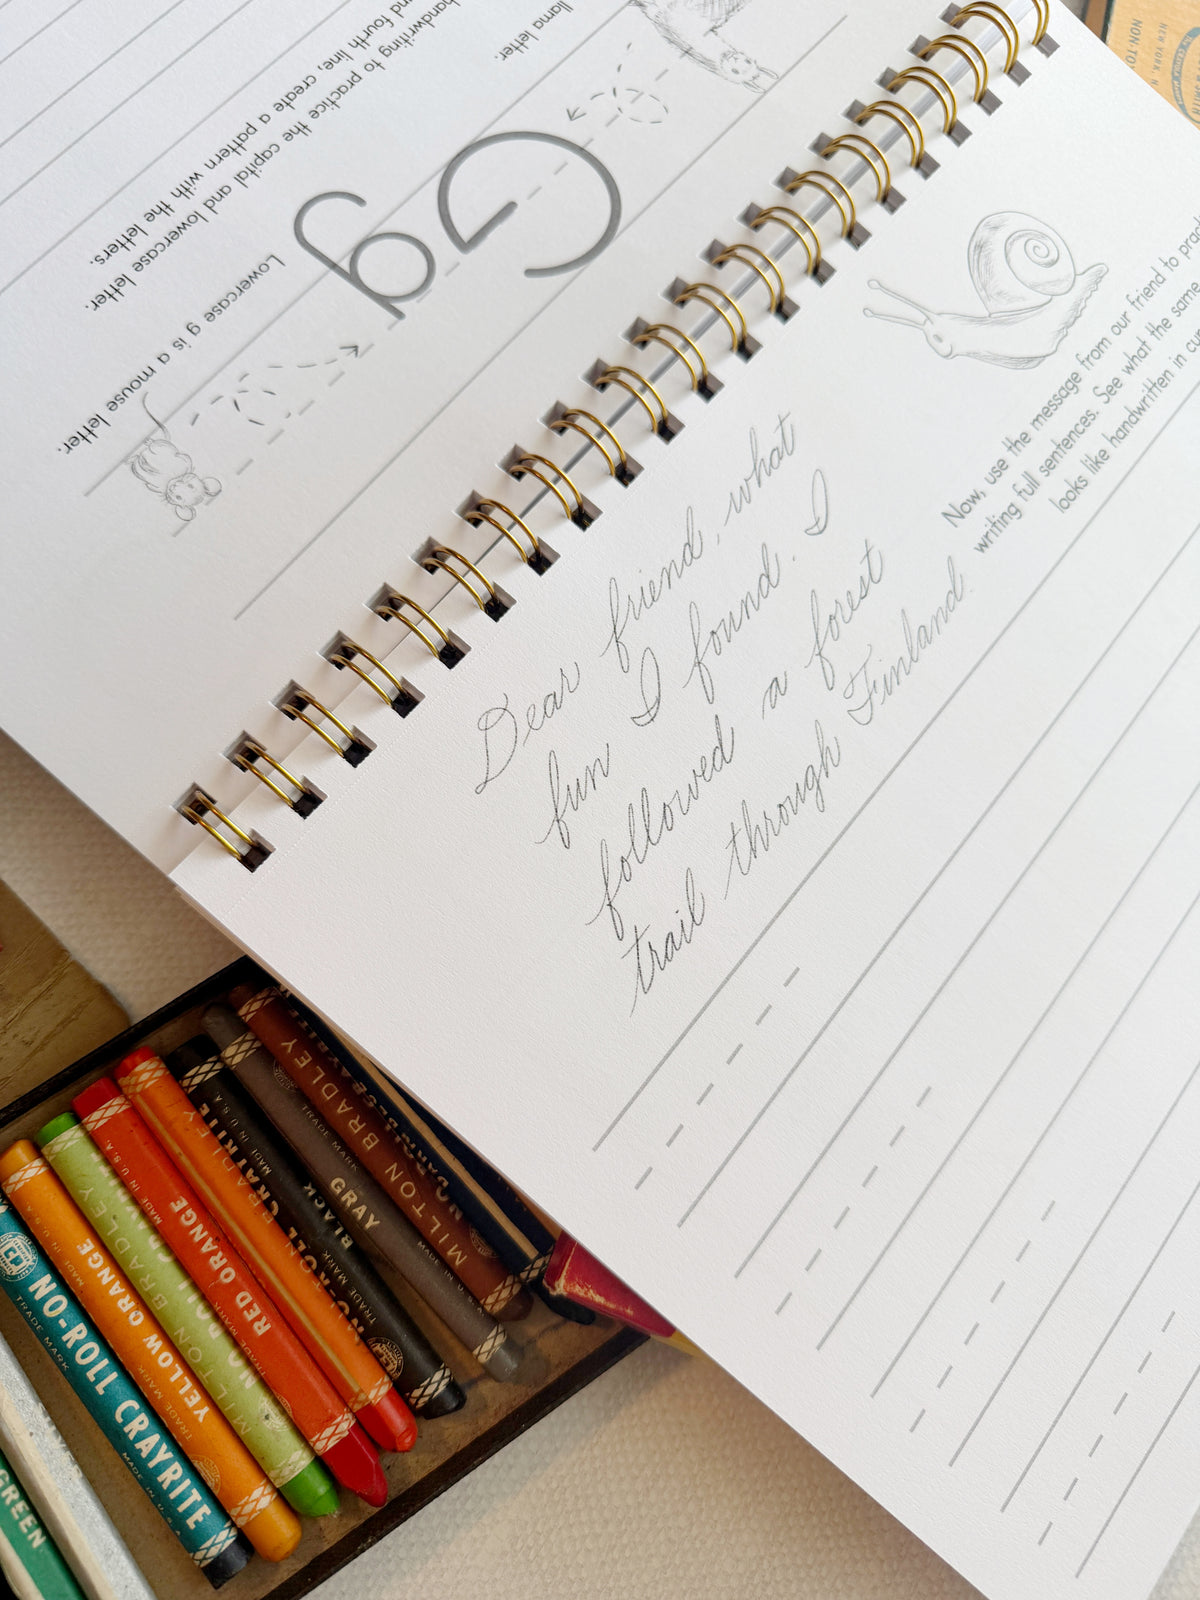 llama letter.
Gg
Lowercase g is a mouse
letter.
handwriting to practice the capital and lowercase letter.
fourth line, create a pattern with the letters.
Now, use the message from our friend to
writing full sentences. See what the same
looks like handwritten in
Dear friend, what
fun I found. I
followed a forest
trail through Finland.
NEW YORK, N.
MILTON BRADLEY
TRADE MARK
GRAY
MADE IN U.S.A.
MADE IN U.S.A.
CRAYRITE
BLACK
NO-ROLL
TRADE MARK
MADE IN U.S.A.
RED ORANGE
TRADE MARK
MILTON BRADLEY
MADE IN U.S.A.
YELLOW ORANGE
TRADE MARK
NO-ROLL CRAYRITE
TRADE MARK
MADE IN U.S.A.
GREEN